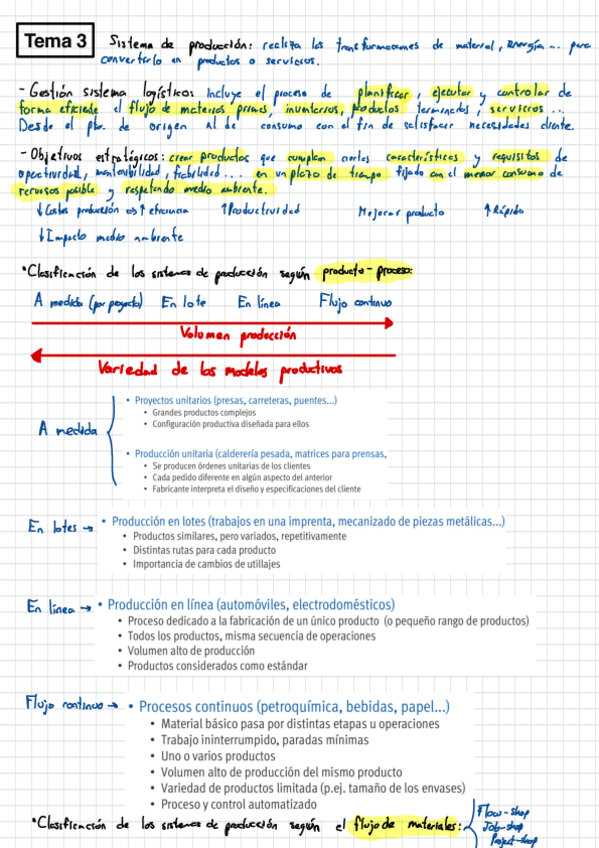 Tema 3
Sistema de producción: realiza las transformaciones de material, energía... para
convertirlo en productos o servicios.
- Gestión sistema logístico: incluye el proceso de planificar, ejecutar y controlar de
forma eficiente el flujo de materias primas, inventarios, productos terminados, servicios...
Desde el pto. de origen al de consumo con el fin de satisfacer necesidades cliente.
- Objetivos estratégicos: crear productos que cumplan ciertas características y requisitos de
operatividad, mantenibilidad, fiabilidad... en un plazo de tiempo fijado con el menor consumo de
recursos posible y respetando medio ambiente.
↓Costes producción ⇒ ↑ eficiencia ↑Productividad Mejorar producto ↑Rápido
↓Impacto medio ambiente
*Clasificación de los sistemas de producción según producto-proceso:
A medida (por proyecto) En lote En línea Flujo continuo
Volumen producción
Variedad de los modelos productivos
A medida
• Proyectos unitarios (presas, carreteras, puentes...)
• Grandes productos complejos
• Configuración productiva diseñada para ellos
• Producción unitaria (calderería pesada, matrices para prensas,
• Se producen órdenes unitarias de los clientes
• Cada pedido diferente en algún aspecto del anterior
• Fabricante interpreta el diseño y especificaciones del cliente
En lotes → • Producción en lotes (trabajos en una imprenta, mecanizado de piezas metálicas...)
• Productos similares, pero variados, repetitivamente
• Distintas rutas para cada producto
• Importancia de cambios de utillajes
En línea → • Producción en línea (automóviles, electrodomésticos)
• Proceso dedicado a la fabricación de un único producto (o pequeño rango de productos)
• Todos los productos, misma secuencia de operaciones
• Volumen alto de producción
• Productos considerados como estándar
Flujo continuo → • Procesos continuos (petroquímica, bebidas, papel...)
• Material básico pasa por distintas etapas u operaciones
• Trabajo ininterrumpido, paradas mínimas
• Uno o varios productos
• Volumen alto de producción del mismo producto
• Variedad de productos limitada (p.ej. tamaño de los envases)
• Proceso y control automatizado
*Clasificación de los sistemas de producción según el flujo de materiales:
Flow-shop
Job-shop
Project-shop